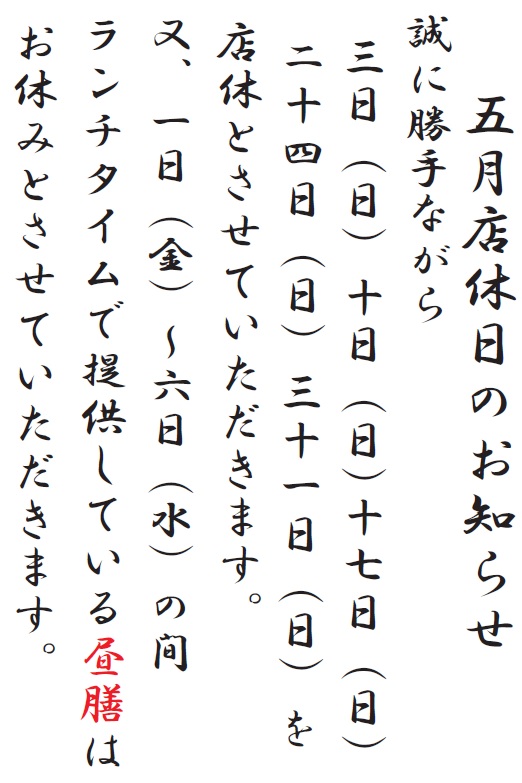 五月店休日のお知らせ
誠に勝手ながら
三日(日)十日(日)十七日(日)
二十四日(日)三十一日(日)を
店休とさせていただきます。
又、一日(金)～六日(水)の間
ランチタイムで提供している昼膳は
お休みとさせていただきます。